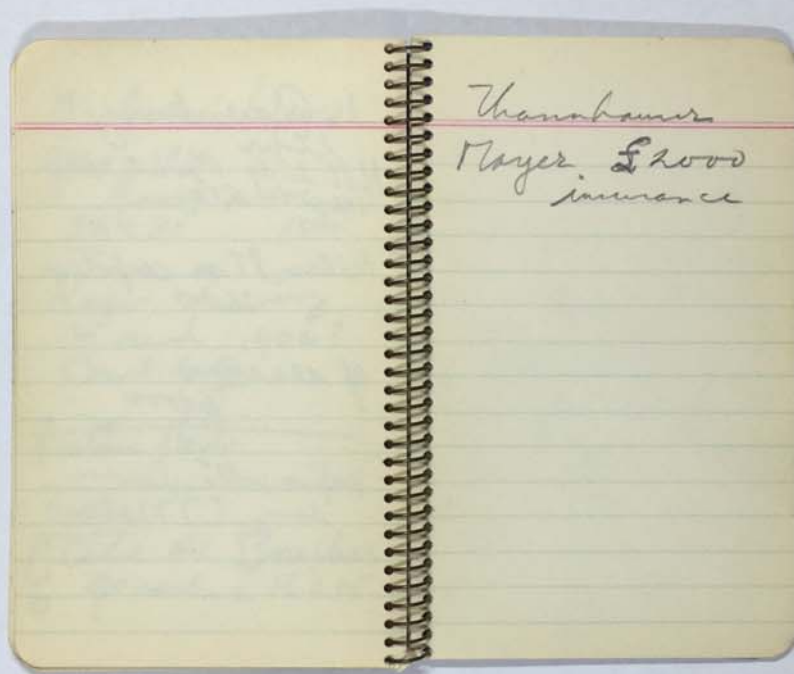 Thannhauser
Mayer £2000
insurance